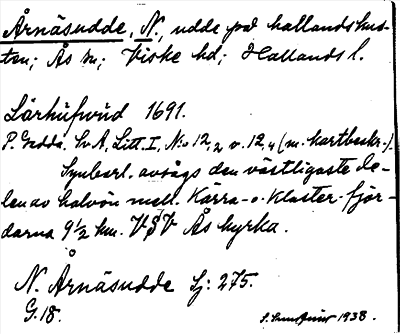 Årnäsudde, N., udde på hallandskus-
ten; Ås sn; Viske hd; Hallands l.
Lärhufwud 1691.
P. Gedda. Kr A, Litt. I, N:o 12,2 o. 12,4 (m. kartbeskr.)
Synbarl. avsågs den västligaste de-
len av halvön mell. Kärra- o. Kloster-fjor-
darna 9½ km. VSV Ås kyrka.
N. Årnäsudde Sj: 275.
G.18.
1938.